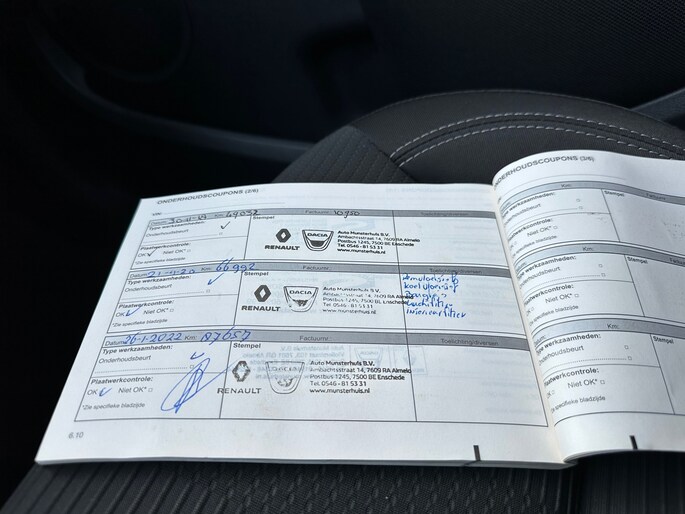 ONDERHOUDSCOUPONS (2/6)
Km: 49032 Factuurnr. 10950
Type werkzaamheden: Stempel
Plaatwerkcontrole:
OK Niet OK*
RENAULT DACIA
Auto Munsterhuis B.V.
Ambachtsstraat 14, 7609 RA Almelo
Postbus 1245, 7500 BE Enschede
Tel. 0546 - 81 53 31
www.munsterhuis.nl
Km: 66992 Factuurnr. Toelichting/diversen
Type werkzaamheden: Stempel
Onderhoudsbeurt
Plaatwerkcontrole:
OK Niet OK*
*Zie specifieke bladzijde
RENAULT DACIA
Auto Munsterhuis B.V.
Postbus 1245, 7500 BE Enschede
Tel. 0546 - 81 53 31
www.munsterhuis.nl
remvloeistof
koelvloeistof
luchtfilter
interieurfilter
Datum: 26-1-2022 Km: 87657 Factuurnr. Toelichting/diversen
Type werkzaamheden: Stempel
Onderhoudsbeurt
Plaatwerkcontrole:
OK Niet OK*
*Zie specifieke bladzijde
RENAULT
Auto Munsterhuis B.V.
Ambachtsstraat 14, 7609 RA Almelo
Postbus 1245, 7500 BE Enschede
Tel. 0546 - 81 53 31
www.munsterhuis.nl
6.10
ONDERHOUDSCOUPONS (3/6)
Km:
Type werkzaamheden:
Onderhoudsbeurt
Plaatwerkcontrole:
Niet OK*
*Zie specifieke bladzijde
Km:
Type werkzaamheden:
Onderhoudsbeurt
Plaatwerkcontrole:
OK Niet OK*
*Zie specifieke bladzijde
Km:
Type werkzaamheden:
Onderhoudsbeurt
Plaatwerkcontrole:
OK Niet OK*
*Zie specifieke bladzijde